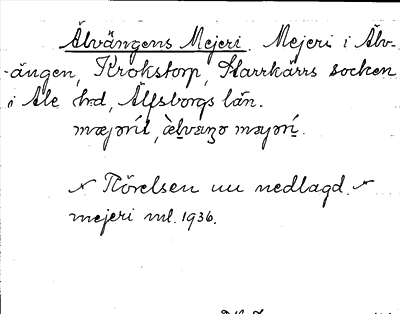 Älvängens Mejeri. Mejeri i Älv-
-ängen, Krokstorp, Starrkärrs socken
i Ale hrd, Älfsborgs län.
"Rörelsen nu nedlagd."
mejeri ml. 1936.